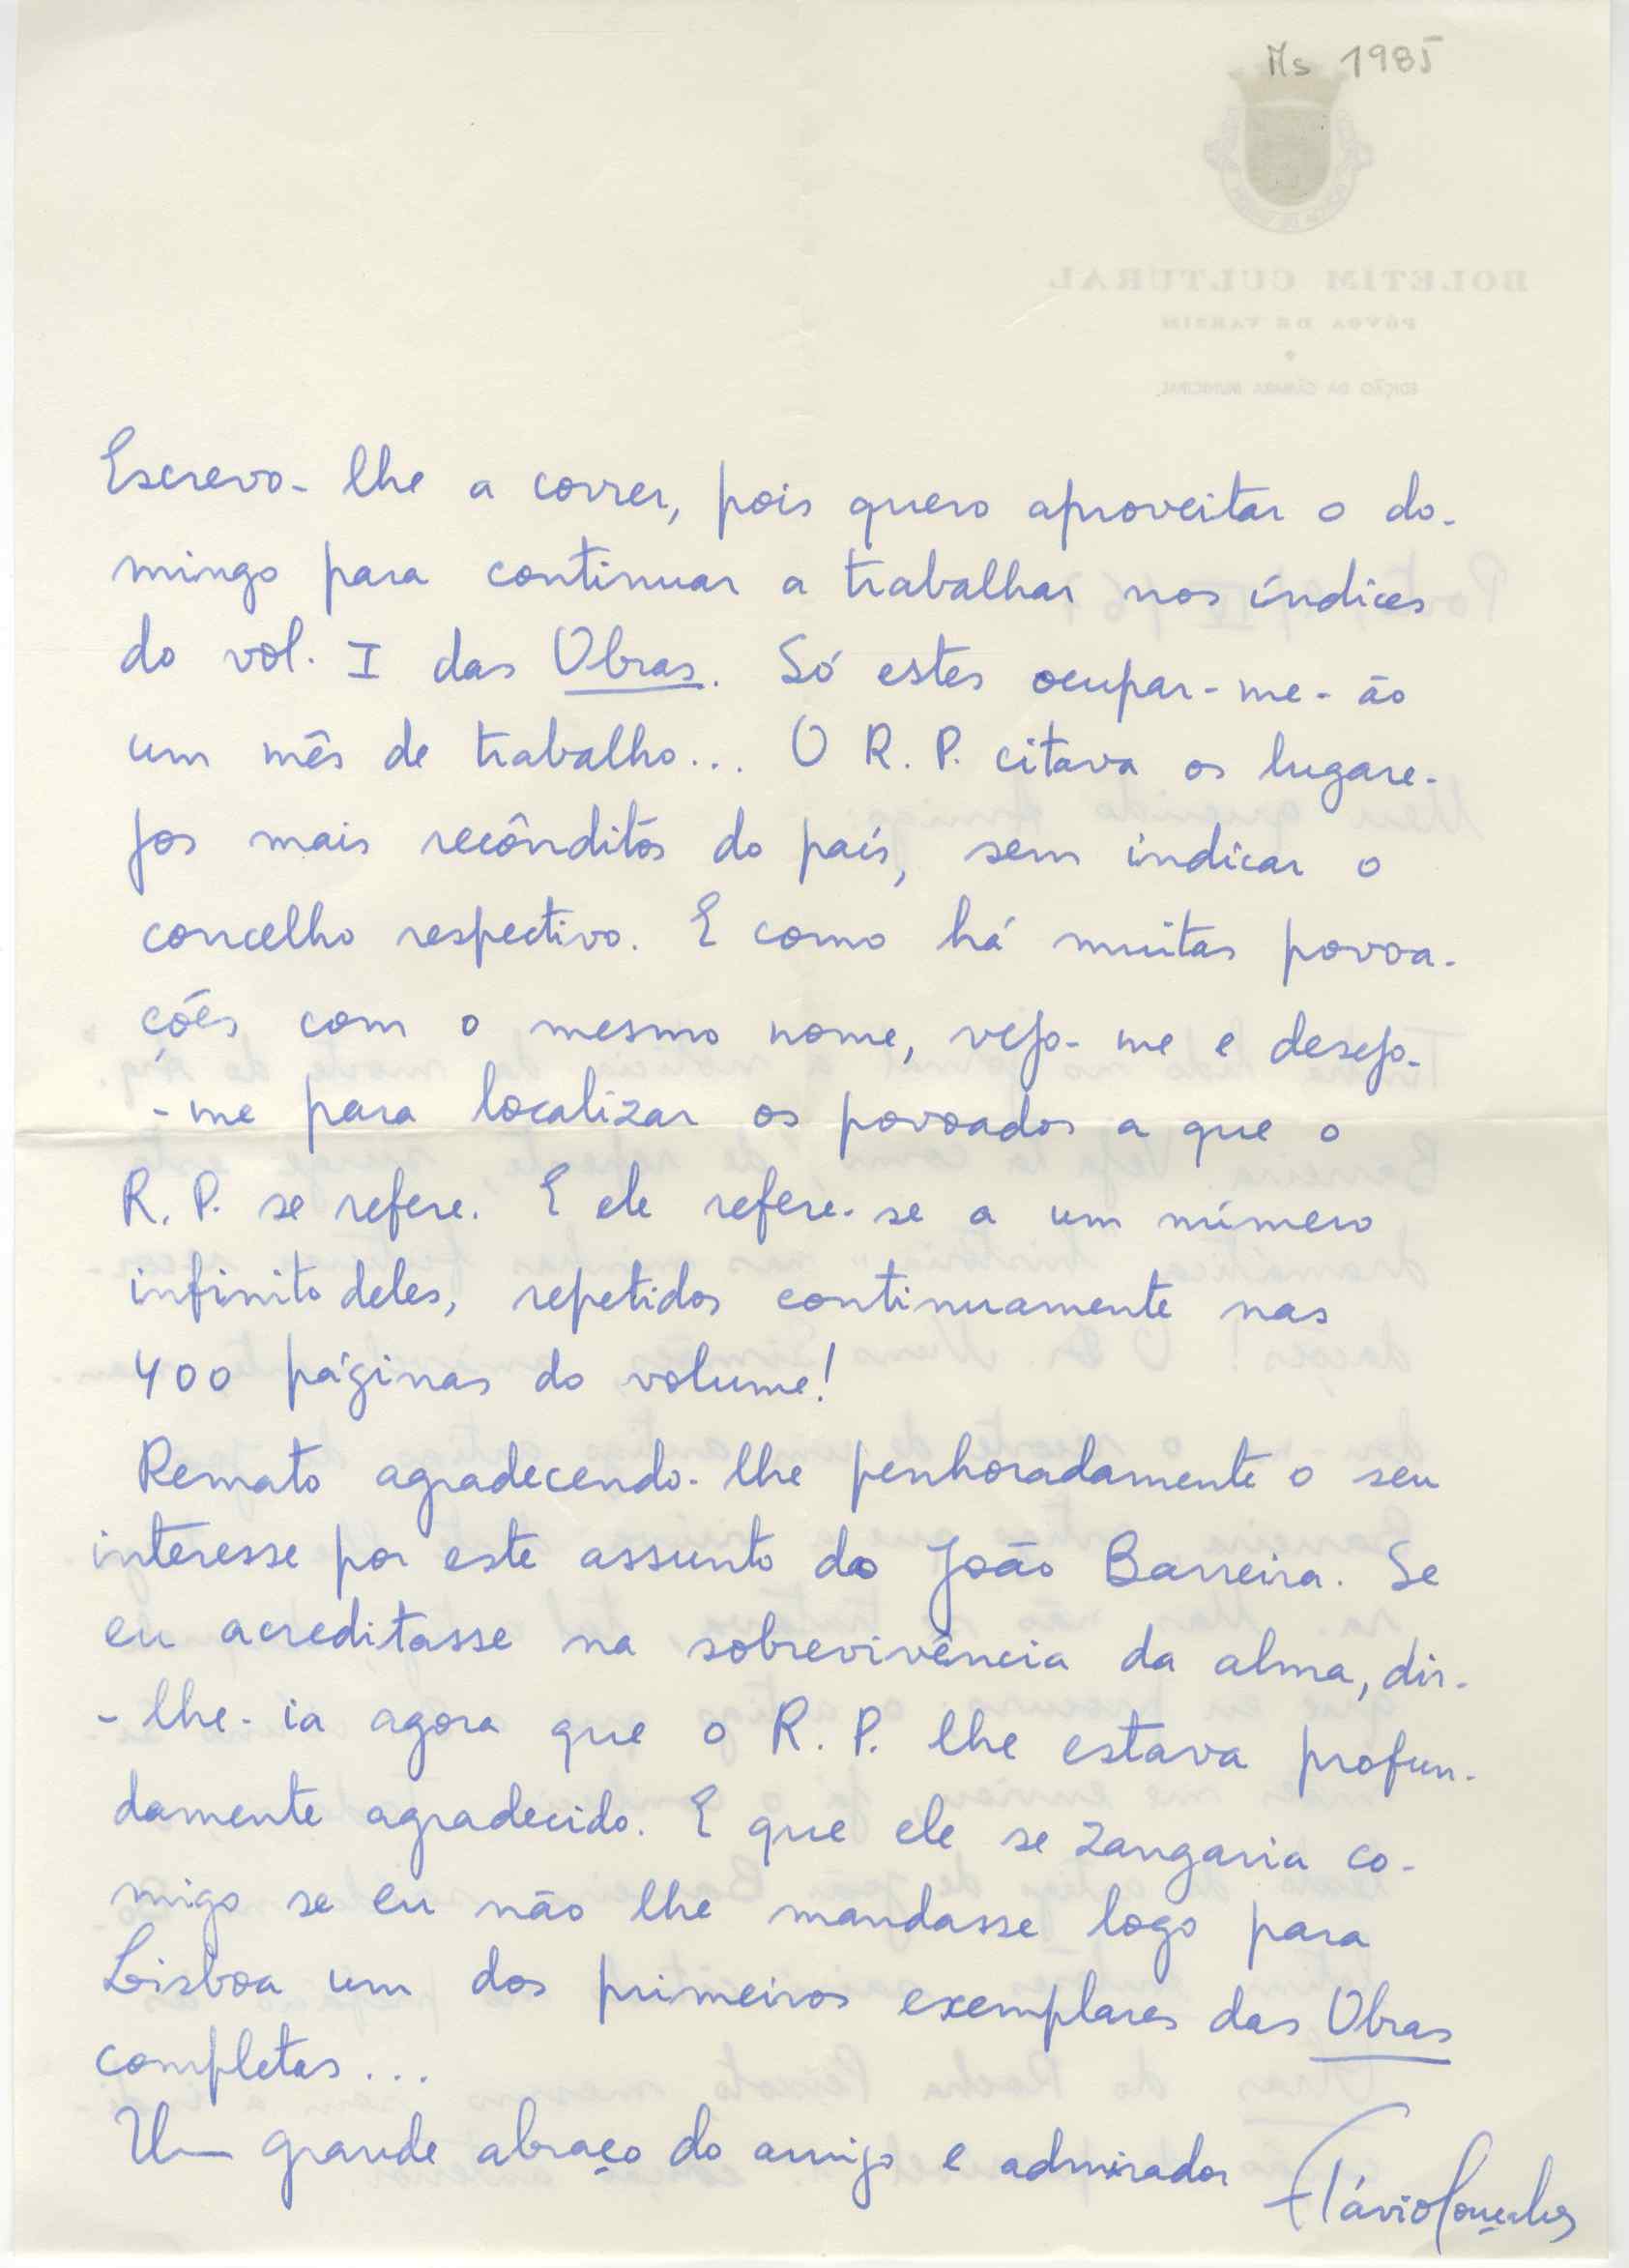 Ms 1985
Escrevo-lhe a correr, pois quero aproveitar o do-
mingo para continuar a trabalhar nos índices
do vol. I das Obras. Só estes ocupar-me-ão
um mês de trabalho... O R. P. citava os lugare-
jos mais recônditos do país, sem indicar o
concelho respectivo. E como há muitas povoa-
ções com o mesmo nome, vejo-me e desejo-
-me para localizar os povoados a que o
R. P. se refere. E ele refere-se a um número
infinito deles, repetidos continuamente nas
400 páginas do volume!
Remato agradecendo-lhe penhoradamente o seu
interesse por este assunto do João Barreira. Se
eu acreditasse na sobrevivência da alma, dir-
-lhe-ia agora que o R. P. lhe estava profun-
damente agradecido. E que ele se zangaria co-
migo se eu não lhe mandasse logo para
Lisboa um dos primeiros exemplares das Obras
completas...
Um grande abraço do amigo e admirador Flávio Gonçalves